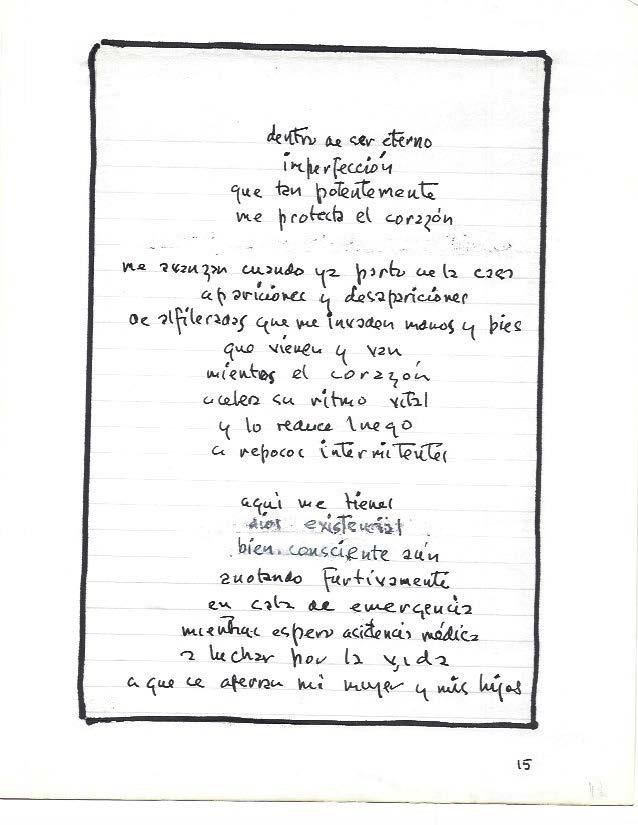 dentro de ser eterno
imperfección
que tan potentemente
me protecta el corazón
me avanzan cuando ya parto de la casa
apariciones y desapariciones
de alfileradas que me invaden manos y pies
que vienen y van
mientras el corazón
acelera su ritmo vital
y lo reduce luego
a reposos intermitentes
aqui me tienes
dios existencial
bien consciente aún
anotando furtivamente
en sala de emergencia
mientras espero asistencia médica
a luchar por la vida
a que se aferran mi mujer y mis hijos
15